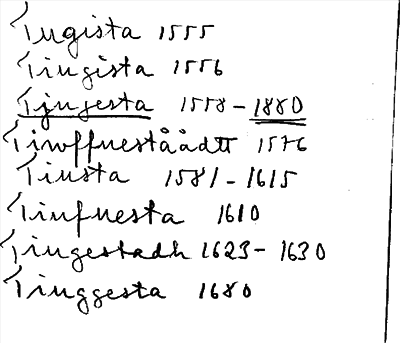 Tugista 1555
Tingista 1556
Tjngesta 1558 - 1880
Tinffneståådtt 1576
Tinsta 1581 - 1615
Tinfnesta 1610
Tingestadh 1623 - 1630
Tinggesta 1680